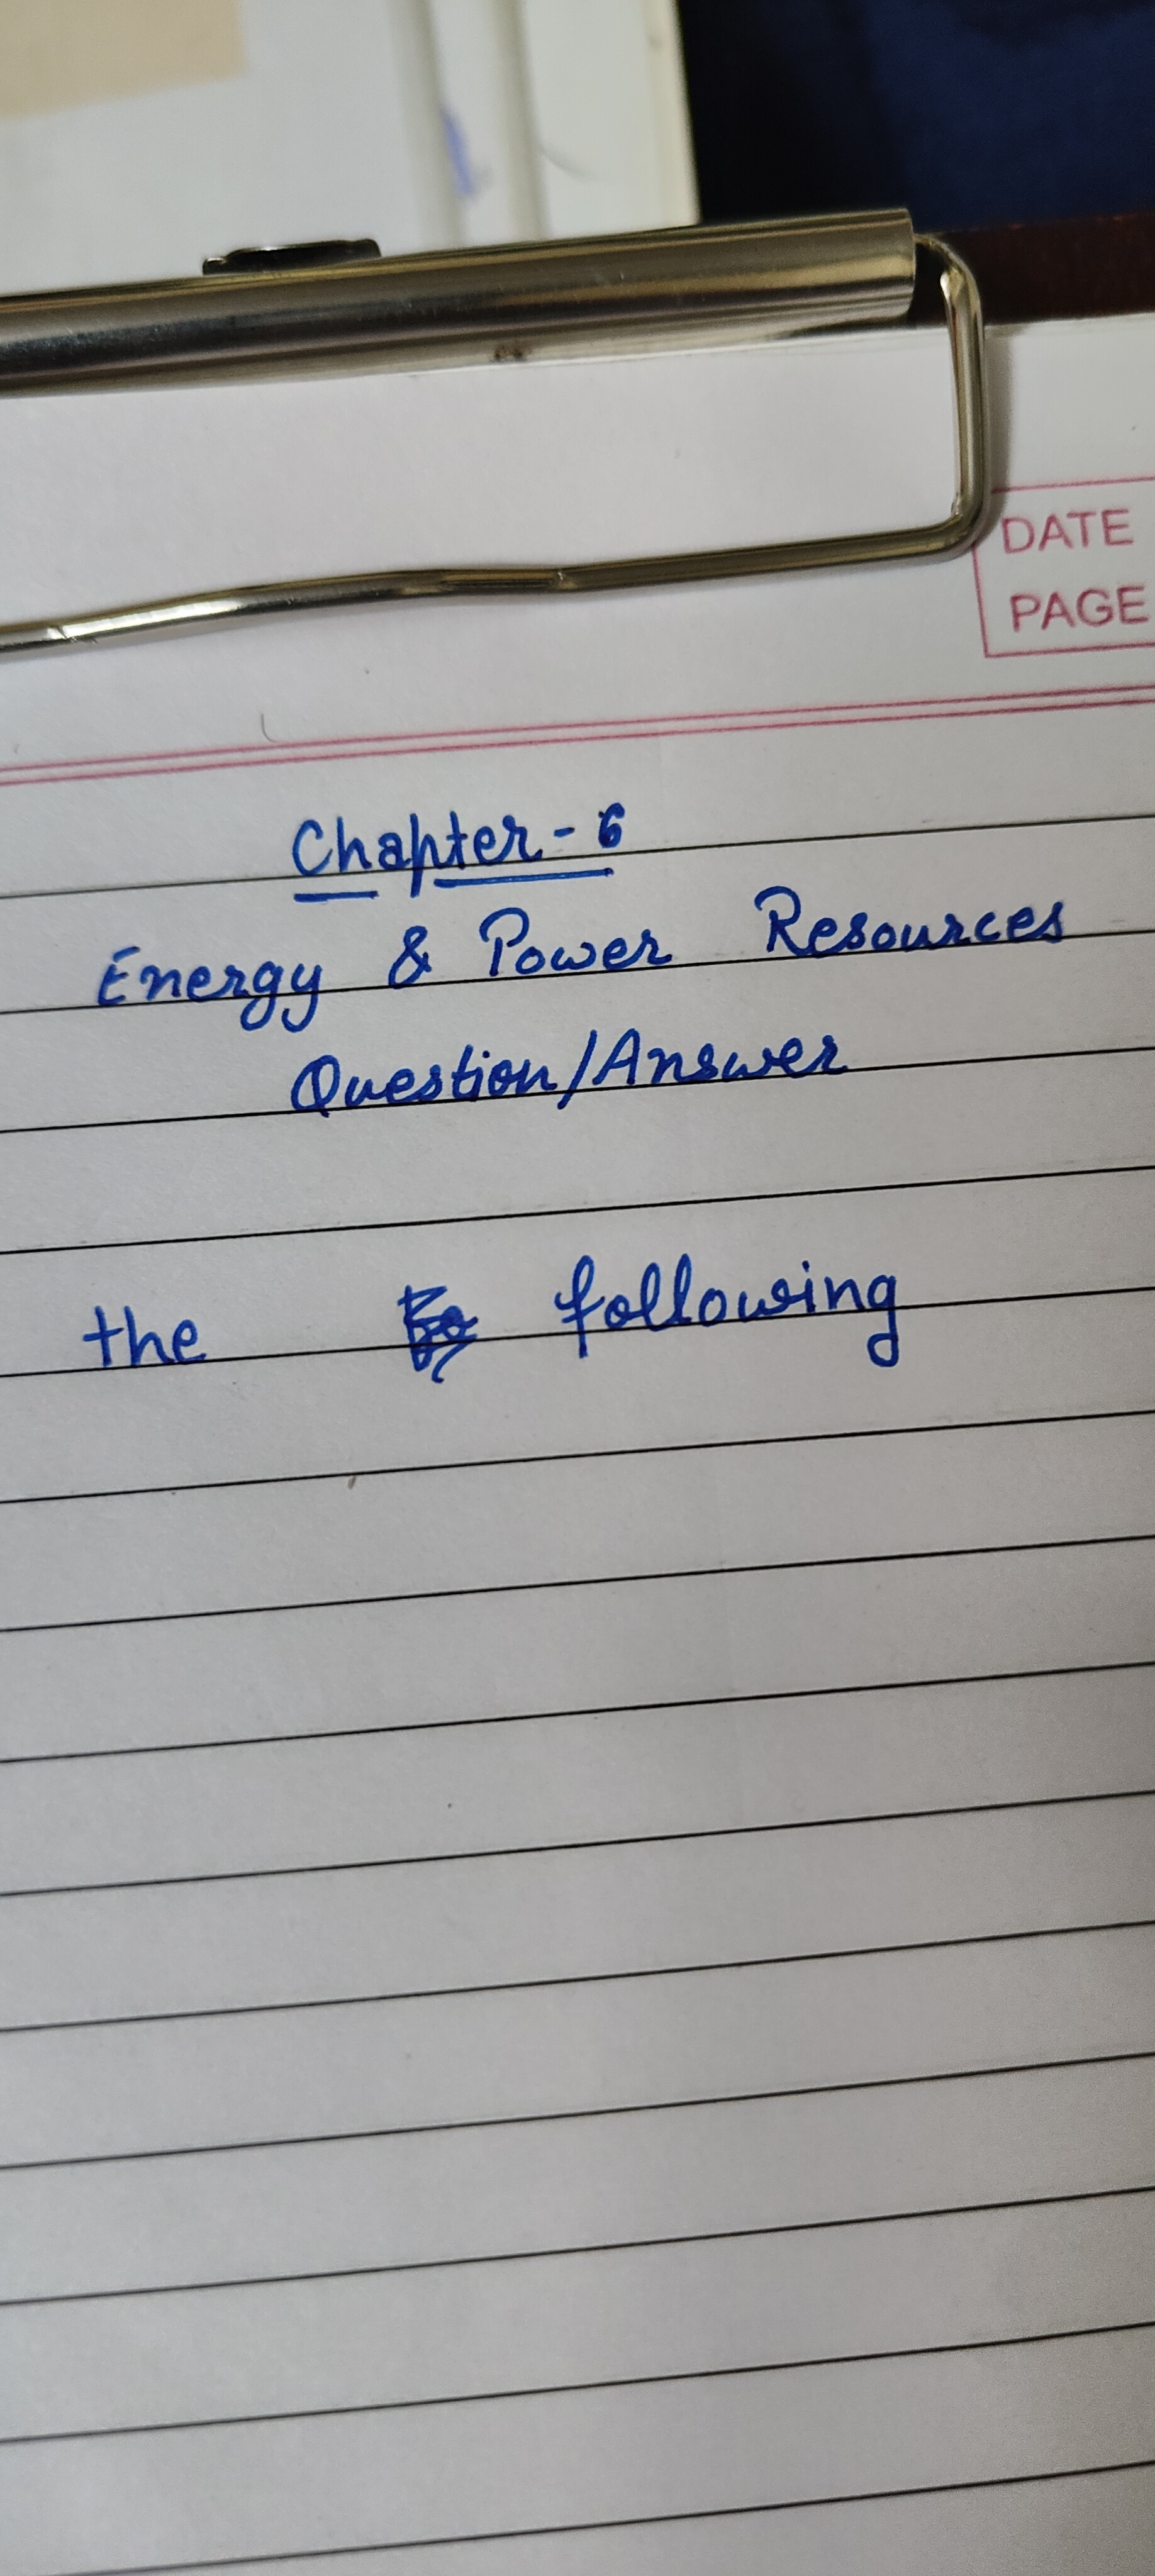 DATE
PAGE
Chapter - 6
Energy & Power Resources
Question/Answer
the following